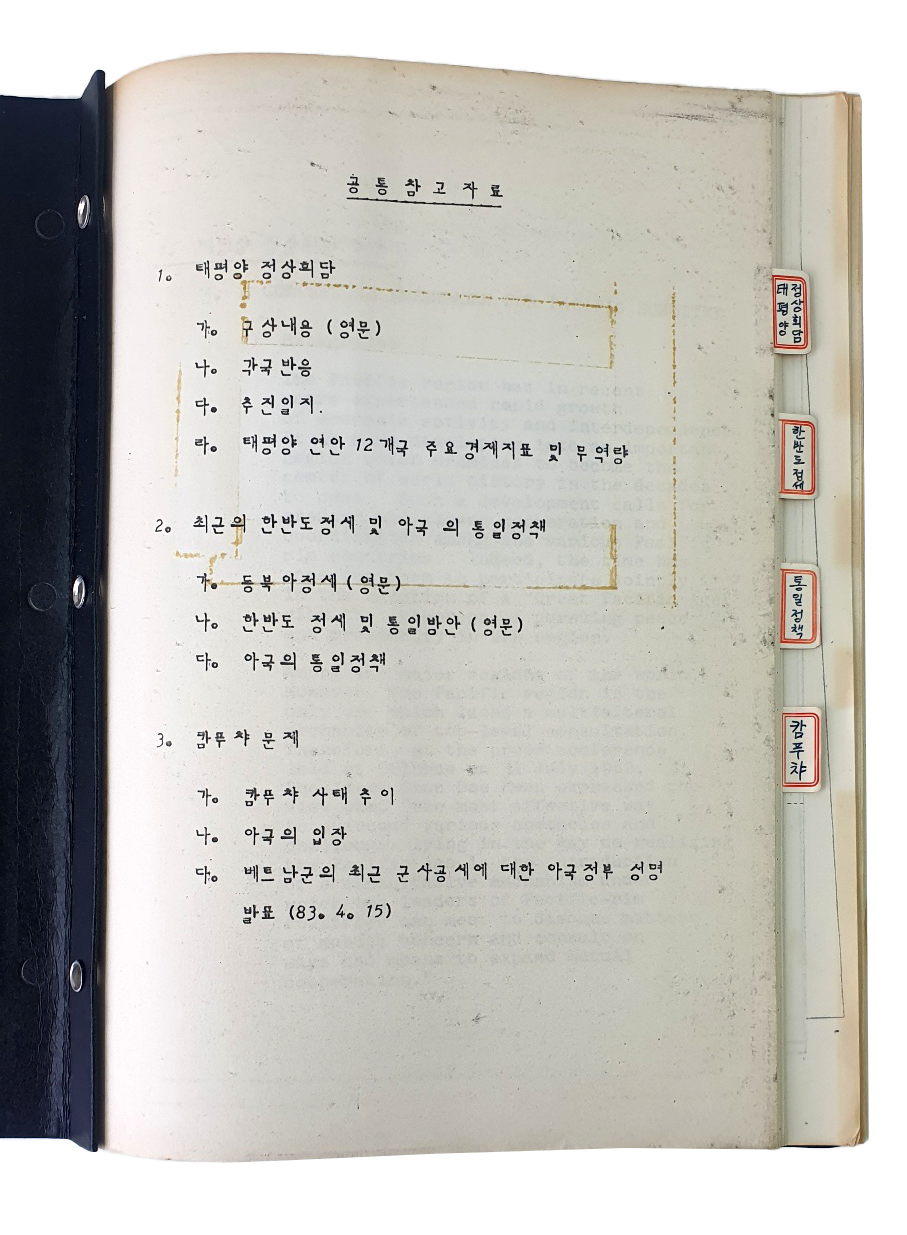 공통참고자료
1. 태평양 정상회담
가. 구상내용 (영문)
나. 각국반응
다. 추진일지.
라. 태평양 연안 12개국 주요경제지표 및 무역량
2. 최근의 한반도정세 및 아국의 통일정책
가. 동북아정세 (영문)
나. 한반도 정세 및 통일방안 (영문)
다. 아국의 통일정책
3. 캄푸챠 문제
가. 캄푸챠 사태 추이
나. 아국의 입장
다. 베트남군의 최근 군사공세에 대한 아국정부 성명
발표 (83. 4. 15)
태평양
정상회담
한반도정세
통일정책
캄푸챠